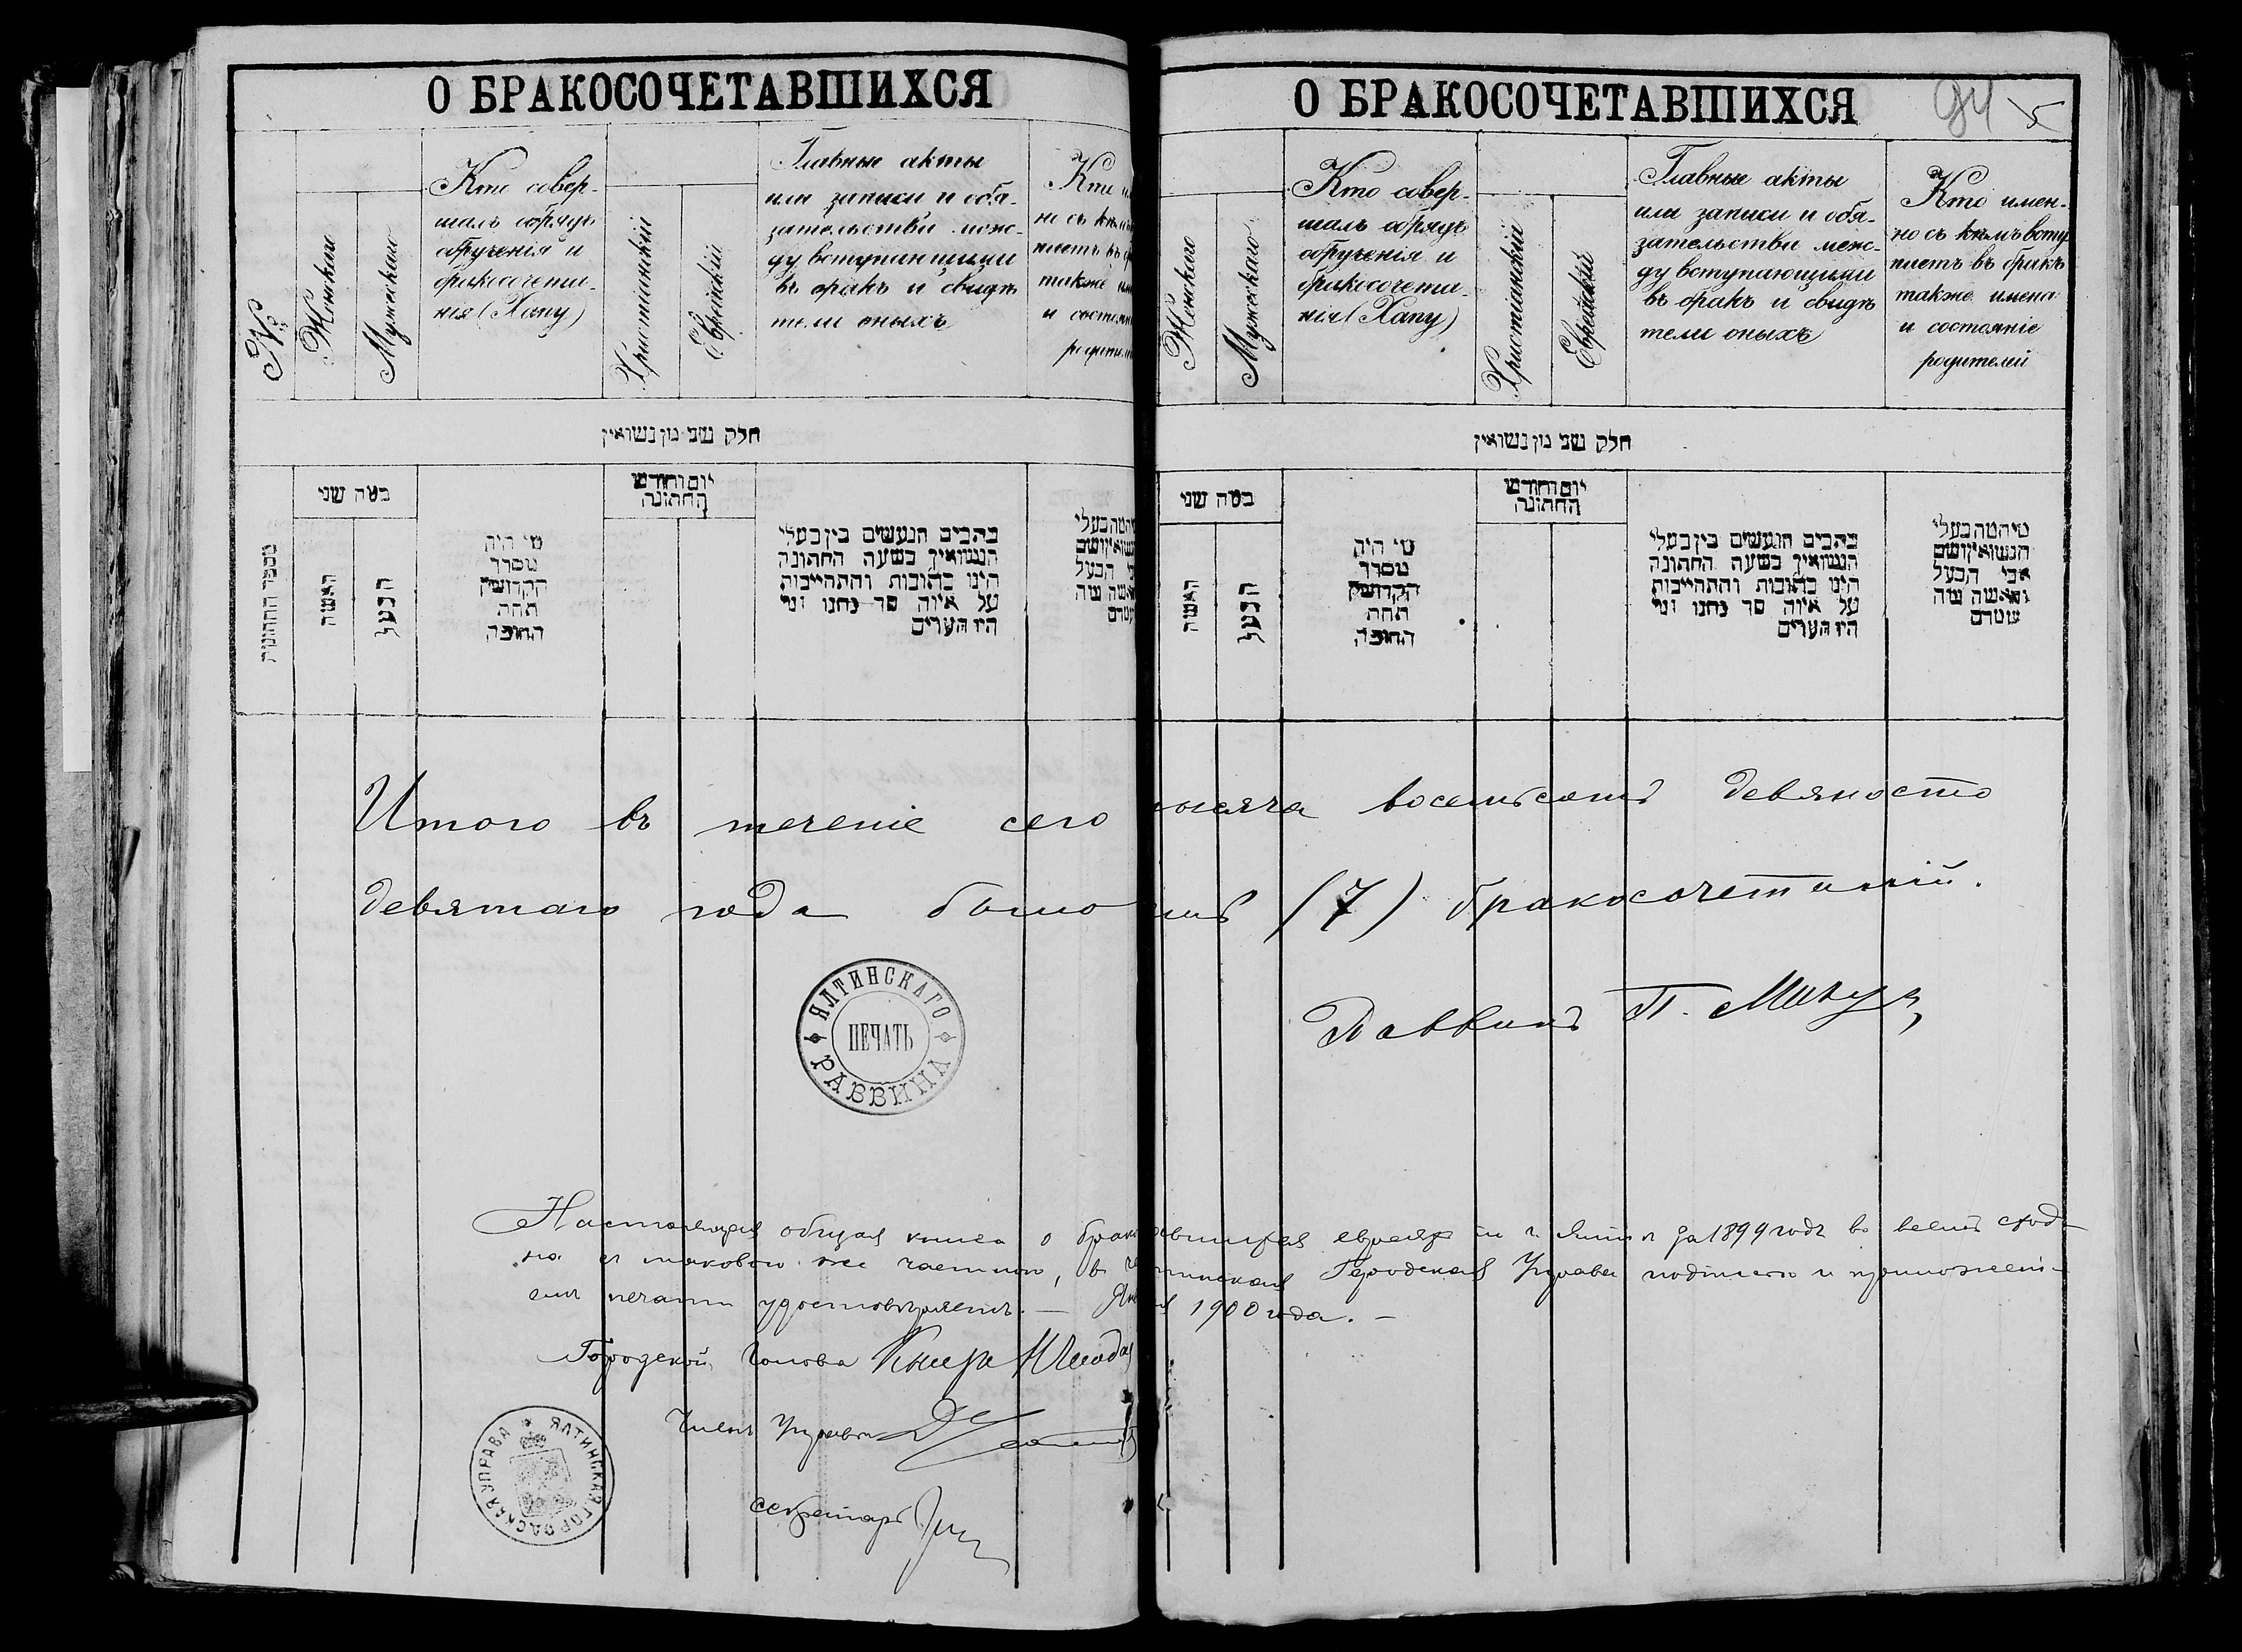 О БРАКОСОЧЕТАВШИХСЯ
№
Женскаго
Мужескаго
Кто совер-
шалъ обрядъ
обрученія и
бракосочета-
нія (Хапу)
Христіанскій
Еврейскій
Главные акты
или записи и обя-
зательства меж-
ду вступающими
въ бракъ и свидѣ
тели оныхъ
Кто
но съ
также
и
חלק שני מן נשואין
מספר החתונות
כמה שני
האשה
הבעל
מי היה
מסדר
הקדושין
תחת
החופה
יום וחודש
החתונה
כתבים הנעשים בין בעלי
הנשואין בשעת החתונה
היינו כתובות והתחייבות
על איזה סך נתנו ומי
היו הערים
О БРАКОСОЧЕТАВШИХСЯ
94
5
Женскаго
Мужескаго
Кто совер-
шалъ обрядъ
обрученія и
бракосочета-
нія (Хапу)
Христіанскій
Еврейскій
Главные акты
или записи и обя-
зательства меж-
ду вступающими
въ бракъ и свидѣ
тели оныхъ
Кто имен-
но съ кѣмъ всту
паетъ въ бракъ
также имена
и состояніе
родителей
חלק שני מן נשואין
כמה שני
האשה
הבעל
מי היה
מסדר
הקדושין
תחת
החופה
יום וחודש
החתונה
כתבים הנעשים בין בעלי
הנשואין בשעת החתונה
היינו כתובות והתחייבות
על איזה סך נתנו ומי
היו הערים
מי המה בעלי
הנשואין ושם
אבי הבעל
והאשה
Итого въ теченіе сего тысяча восемьсотъ девяносто
девятаго года было (7) бракосочетаній.
ЯЛТИНСКАГО
ПЕЧАТЬ
РАВВИНА
Раввинъ П.
Настоящая общая книга о евреяхъ г. за 1899 годъ во всемъ сход-
на съ таковою же частною, въ Городская Управа подписью и приложені-
емъ печати удостовѣряетъ. — 1900 года. —
Городской Голова Князь
Членъ Управы
Секретарь
ЯЛТИНСКАЯ ГОРОДСКАЯ УПРАВА